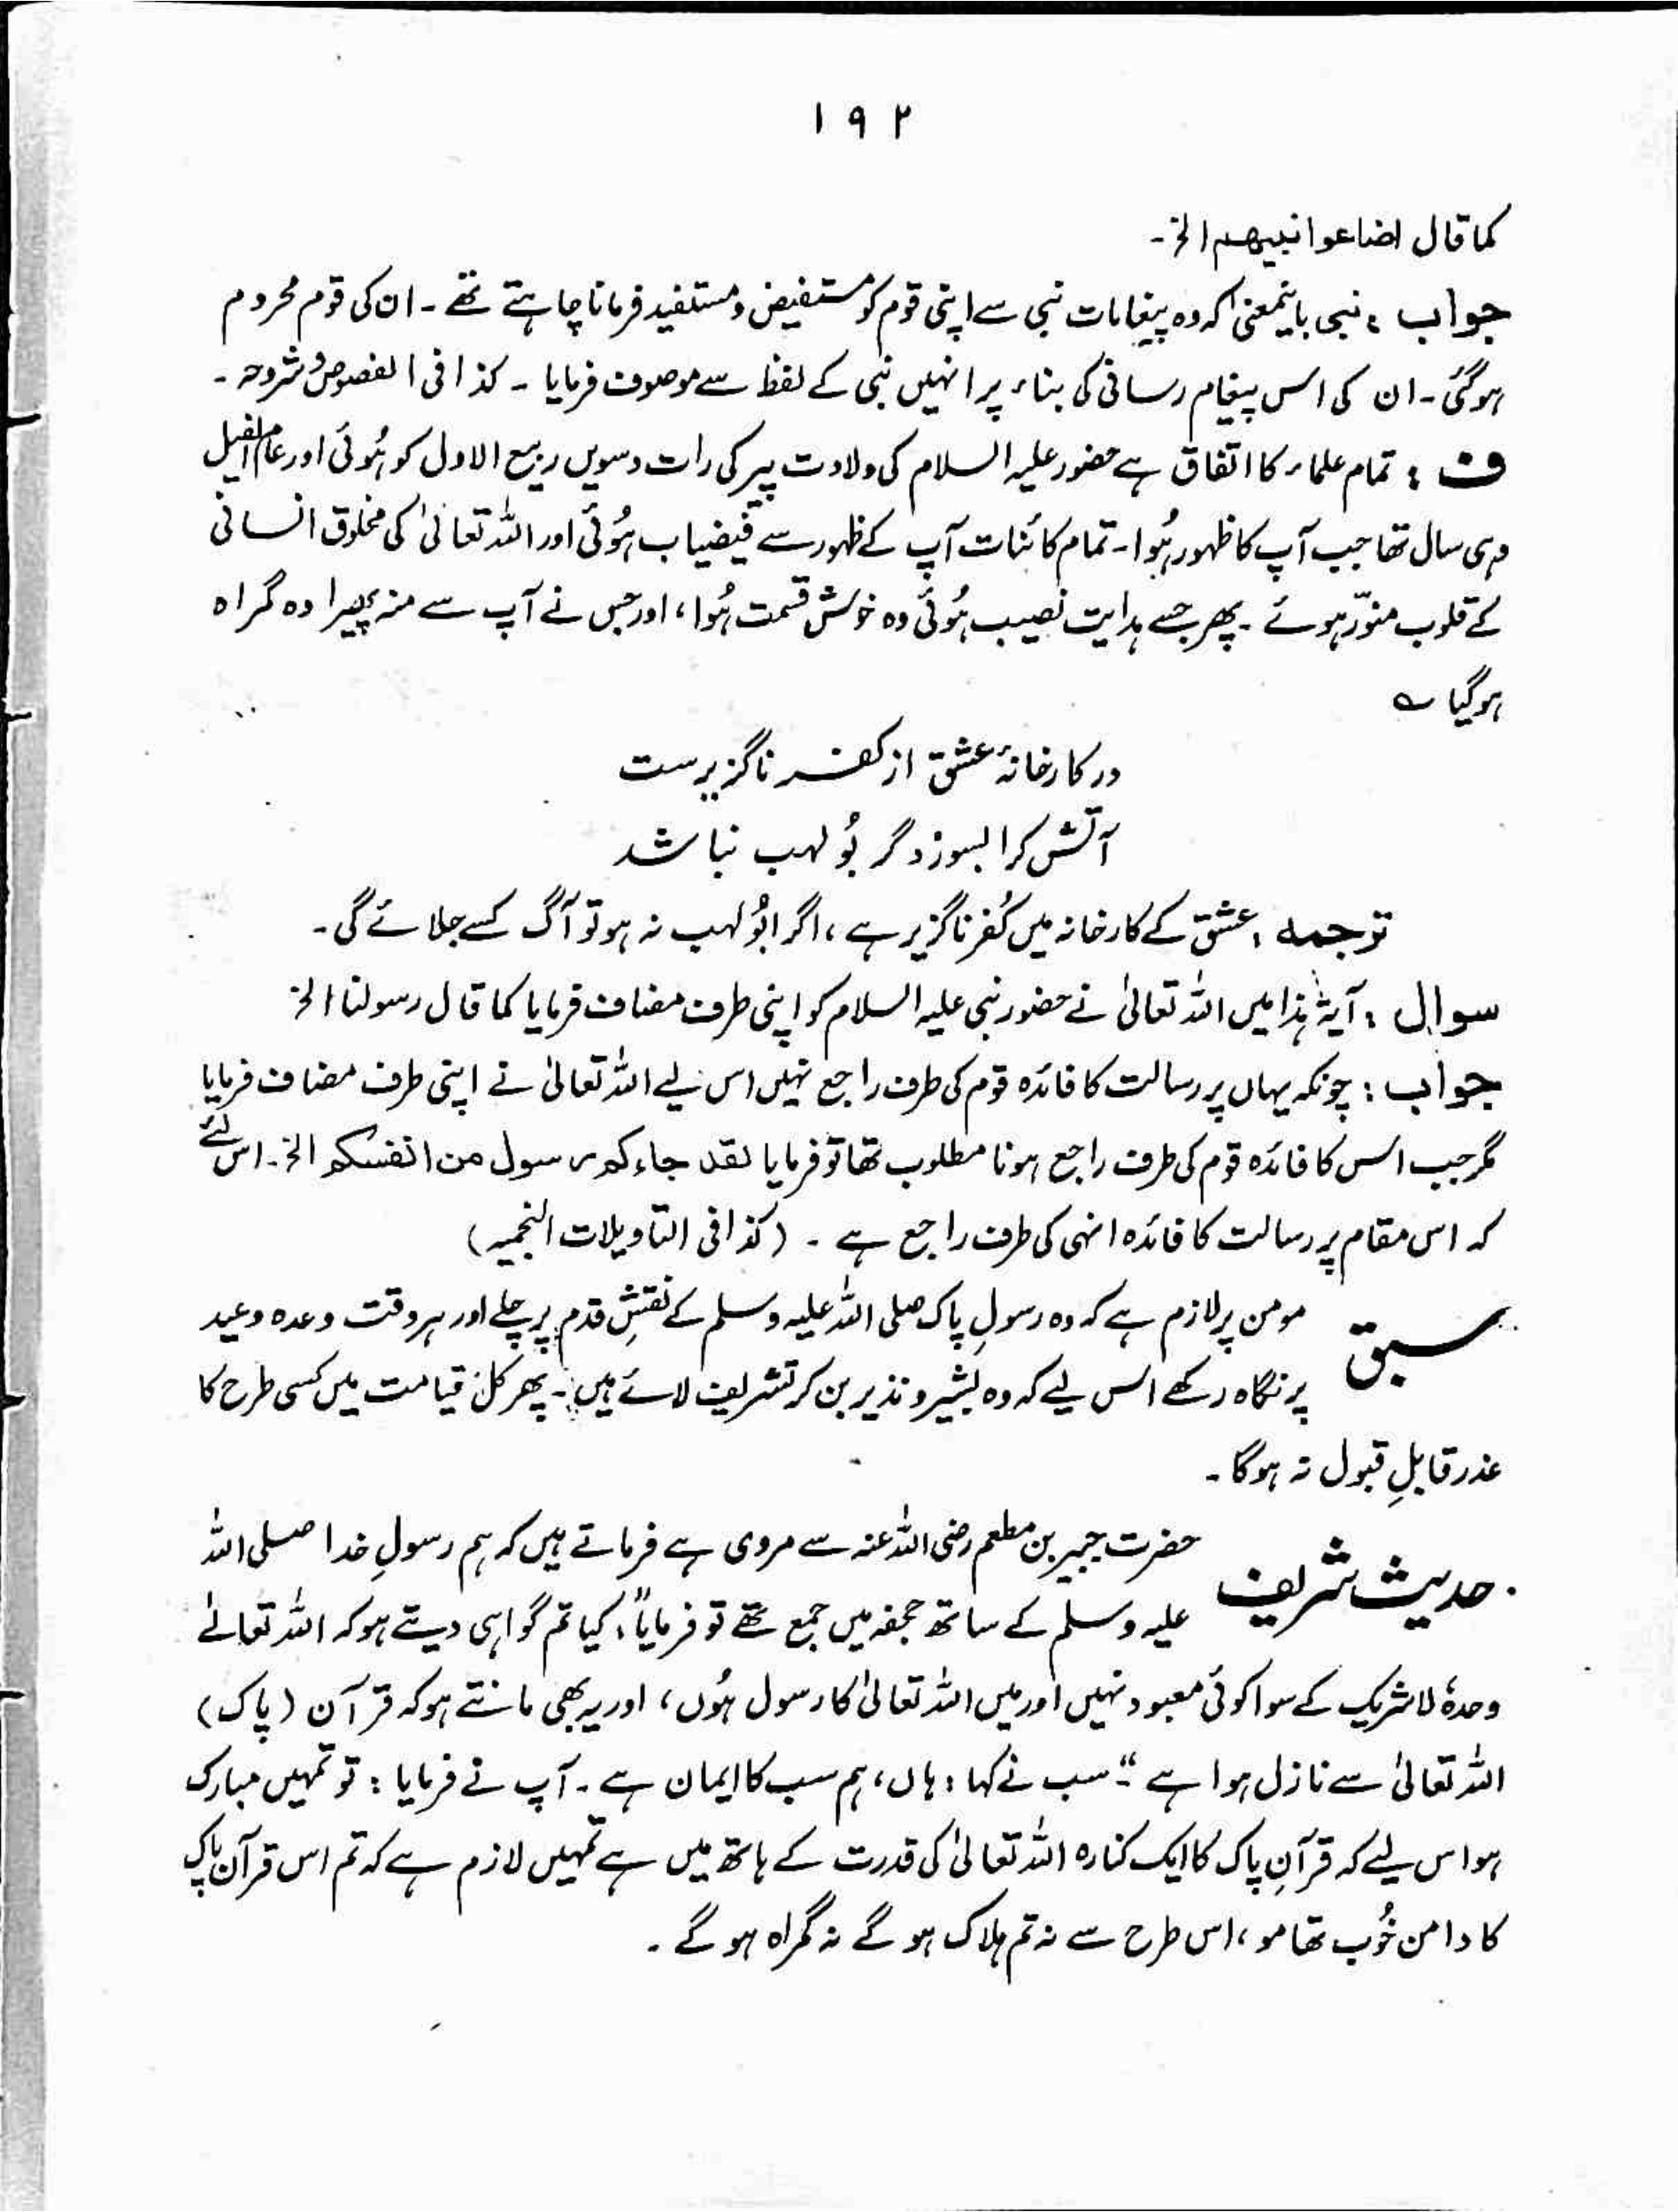 ۱۹۲
کما قال اضاعوا نبیھم الخ۔
جواب : نبی بایں معنیٰ کہ وہ پیغامات نبی سے اپنی قوم کو مستفیض و مستفید فرمانا چاہتے تھے ۔ ان کی قوم محروم
ہوگئی ۔ ان کی اس پیغام رسانی کی بناء پر انہیں نبی کے لفظ سے موصوف فرمایا ۔ کذا فی الفصوص و شروحہ ۔
ف : تمام علماء کا اتفاق ہے حضور علیہ السلام کی ولادت پیر کی رات دسویں ربیع الاول کو ہُوئی اور عام الفیل
وہی سال تھا جب آپ کا ظہور ہُوا ۔ تمام کائنات آپ کے ظہور سے فیضیاب ہُوئی اور اللہ تعالیٰ کی مخلوق انسانی
کے قلوب منوّر ہوئے ۔ پھر جسے ہدایت نصیب ہُوئی وہ خوش قسمت ہُوا ، اور جس نے آپ سے منہ پھیرا وہ گمراہ
ہوگیا ؎
در کارخانۂ عشق از کفر ناگزیرست
آتش کرا بسوزد گر بُولہب نباشد
ترجمہ : عشق کے کارخانہ میں کُفر ناگزیر ہے ، اگر ابُولہب نہ ہو تو آگ کسے جلائے گی ۔
سوال : آیۂ ہذا میں اللہ تعالیٰ نے حضور نبی علیہ السلام کو اپنی طرف مضاف فرمایا کما قال رسولنا الخ
جواب : چونکہ یہاں پر رسالت کا فائدہ قوم کی طرف راجع نہیں اس لیے اللہ تعالیٰ نے اپنی طرف مضاف فرمایا
مگر جب اس کا فائدہ قوم کی طرف راجع ہونا مطلوب تھا تو فرمایا لقد جاءکم رسول من انفسکم الخ ۔ اس لئے
کہ اس مقام پر رسالت کا فائدہ انہی کی طرف راجع ہے ۔ (کذا فی التاویلات النجمیہ)
سبق مومن پر لازم ہے کہ وہ رسولِ پاک صلی اللہ علیہ وسلم کے نقشِ قدم پر چلے اور ہر وقت وعدہ وعید
پر نگاہ رکھے اس لیے کہ وہ بشیر و نذیر بن کر تشریف لائے ہیں ۔ پھر کل قیامت میں کسی طرح کا
عذر قابلِ قبول نہ ہوگا ۔
حدیث شریف حضرت جبیر بن مطعم رضی اللہ عنہ سے مروی ہے فرماتے ہیں کہ ہم رسولِ خدا صلی اللہ
علیہ وسلم کے ساتھ جحفہ میں جمع تھے تو فرمایا : "کیا تم گواہی دیتے ہو کہ اللہ تعالےٰ
وحدہٗ لاشریک کے سوا کوئی معبود نہیں اور میں اللہ تعالیٰ کا رسول ہُوں ، اور یہ بھی مانتے ہو کہ قرآن (پاک)
اللہ تعالیٰ سے نازل ہوا ہے "۔ سب نے کہا : ہاں ، ہم سب کا ایمان ہے ۔ آپ نے فرمایا : تو تمہیں مبارک
ہو اس لیے کہ قرآنِ پاک کا ایک کنارہ اللہ تعالیٰ کی قدرت کے ہاتھ میں ہے تمہیں لازم ہے کہ تم اس قرآن پاک
کا دامن خُوب تھامو ، اس طرح سے نہ تم ہلاک ہو گے نہ گمراہ ہو گے ۔